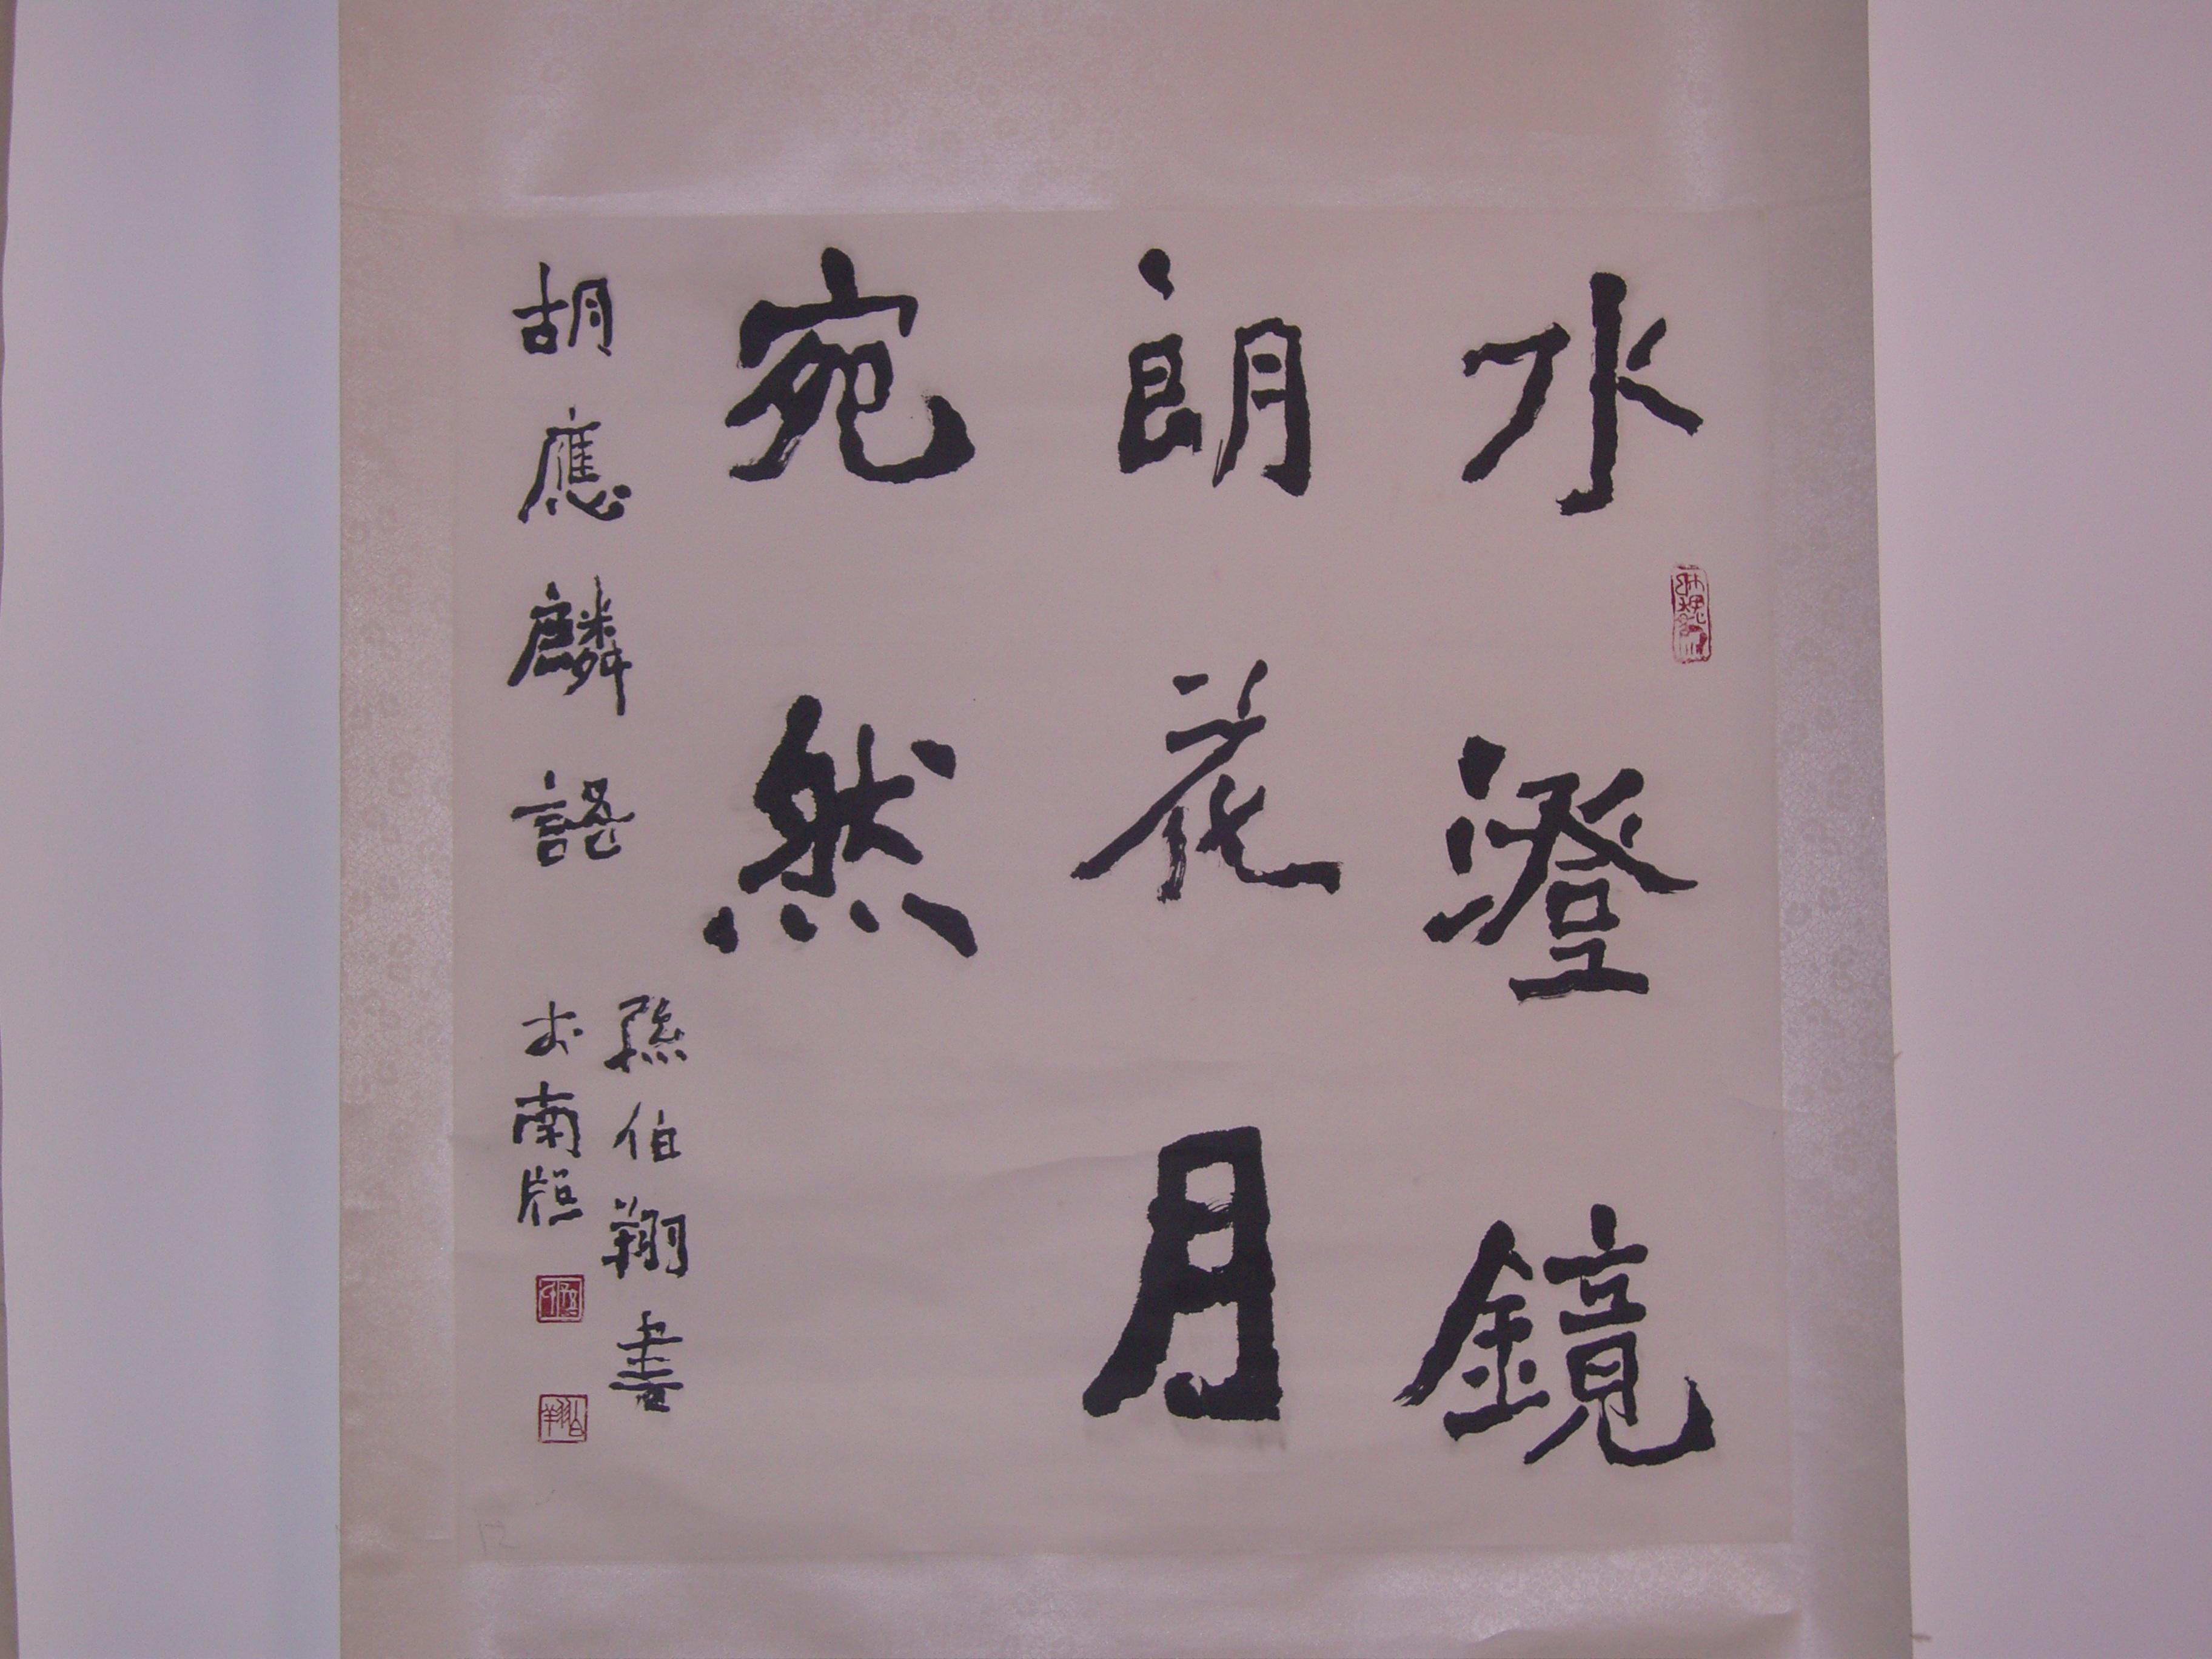 水澄鏡
朗花月
宛然
胡應麟語
孫伯翔書
於南牕